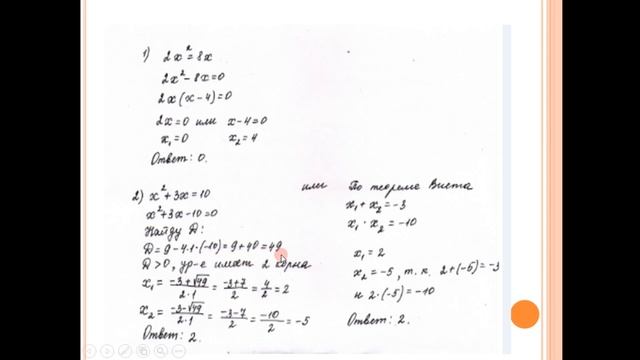 1) 2x² = 8x
2x² - 8x = 0
2x(x - 4) = 0
2x = 0 или x - 4 = 0
x₁ = 0 x₂ = 4
Ответ: 0.
2) x² + 3x = 10
x² + 3x - 10 = 0
Найду D:
D = 9 - 4·1·(-10) = 9 + 40 = 49
D > 0, ур-е имеет 2 корня
x₁ = (-3 + √49)/(2·1) = (-3+7)/2 = 4/2 = 2
x₂ = (-3 - √49)/(2·1) = (-3-7)/2 = -10/2 = -5
Ответ: 2.
или По теореме Виета
x₁ + x₂ = -3
x₁ · x₂ = -10
x₁ = 2
x₂ = -5, т.к. 2 + (-5) = -3
и 2·(-5) = -10
Ответ: 2.